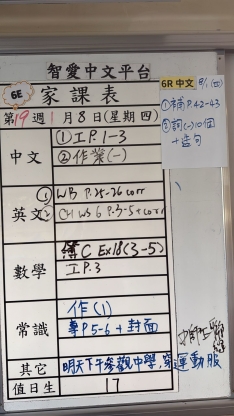 智愛中文平台
6E 家課表
第19週1月8日(星期四)
中文 ①工P.1-3
②作業(一)
英文 ① WB P.25-26 corr
② CH WS 6 P.3-5 + corr
數學 簿C Ex18(3-5)
工P.3
常識 作(1)
P.5-6 + 封面
其它 明天下午參觀中學,穿運動服
值日生 17
6R 中文 8/1 (四)
①補P.42-43
②詞(一)10個
+造句